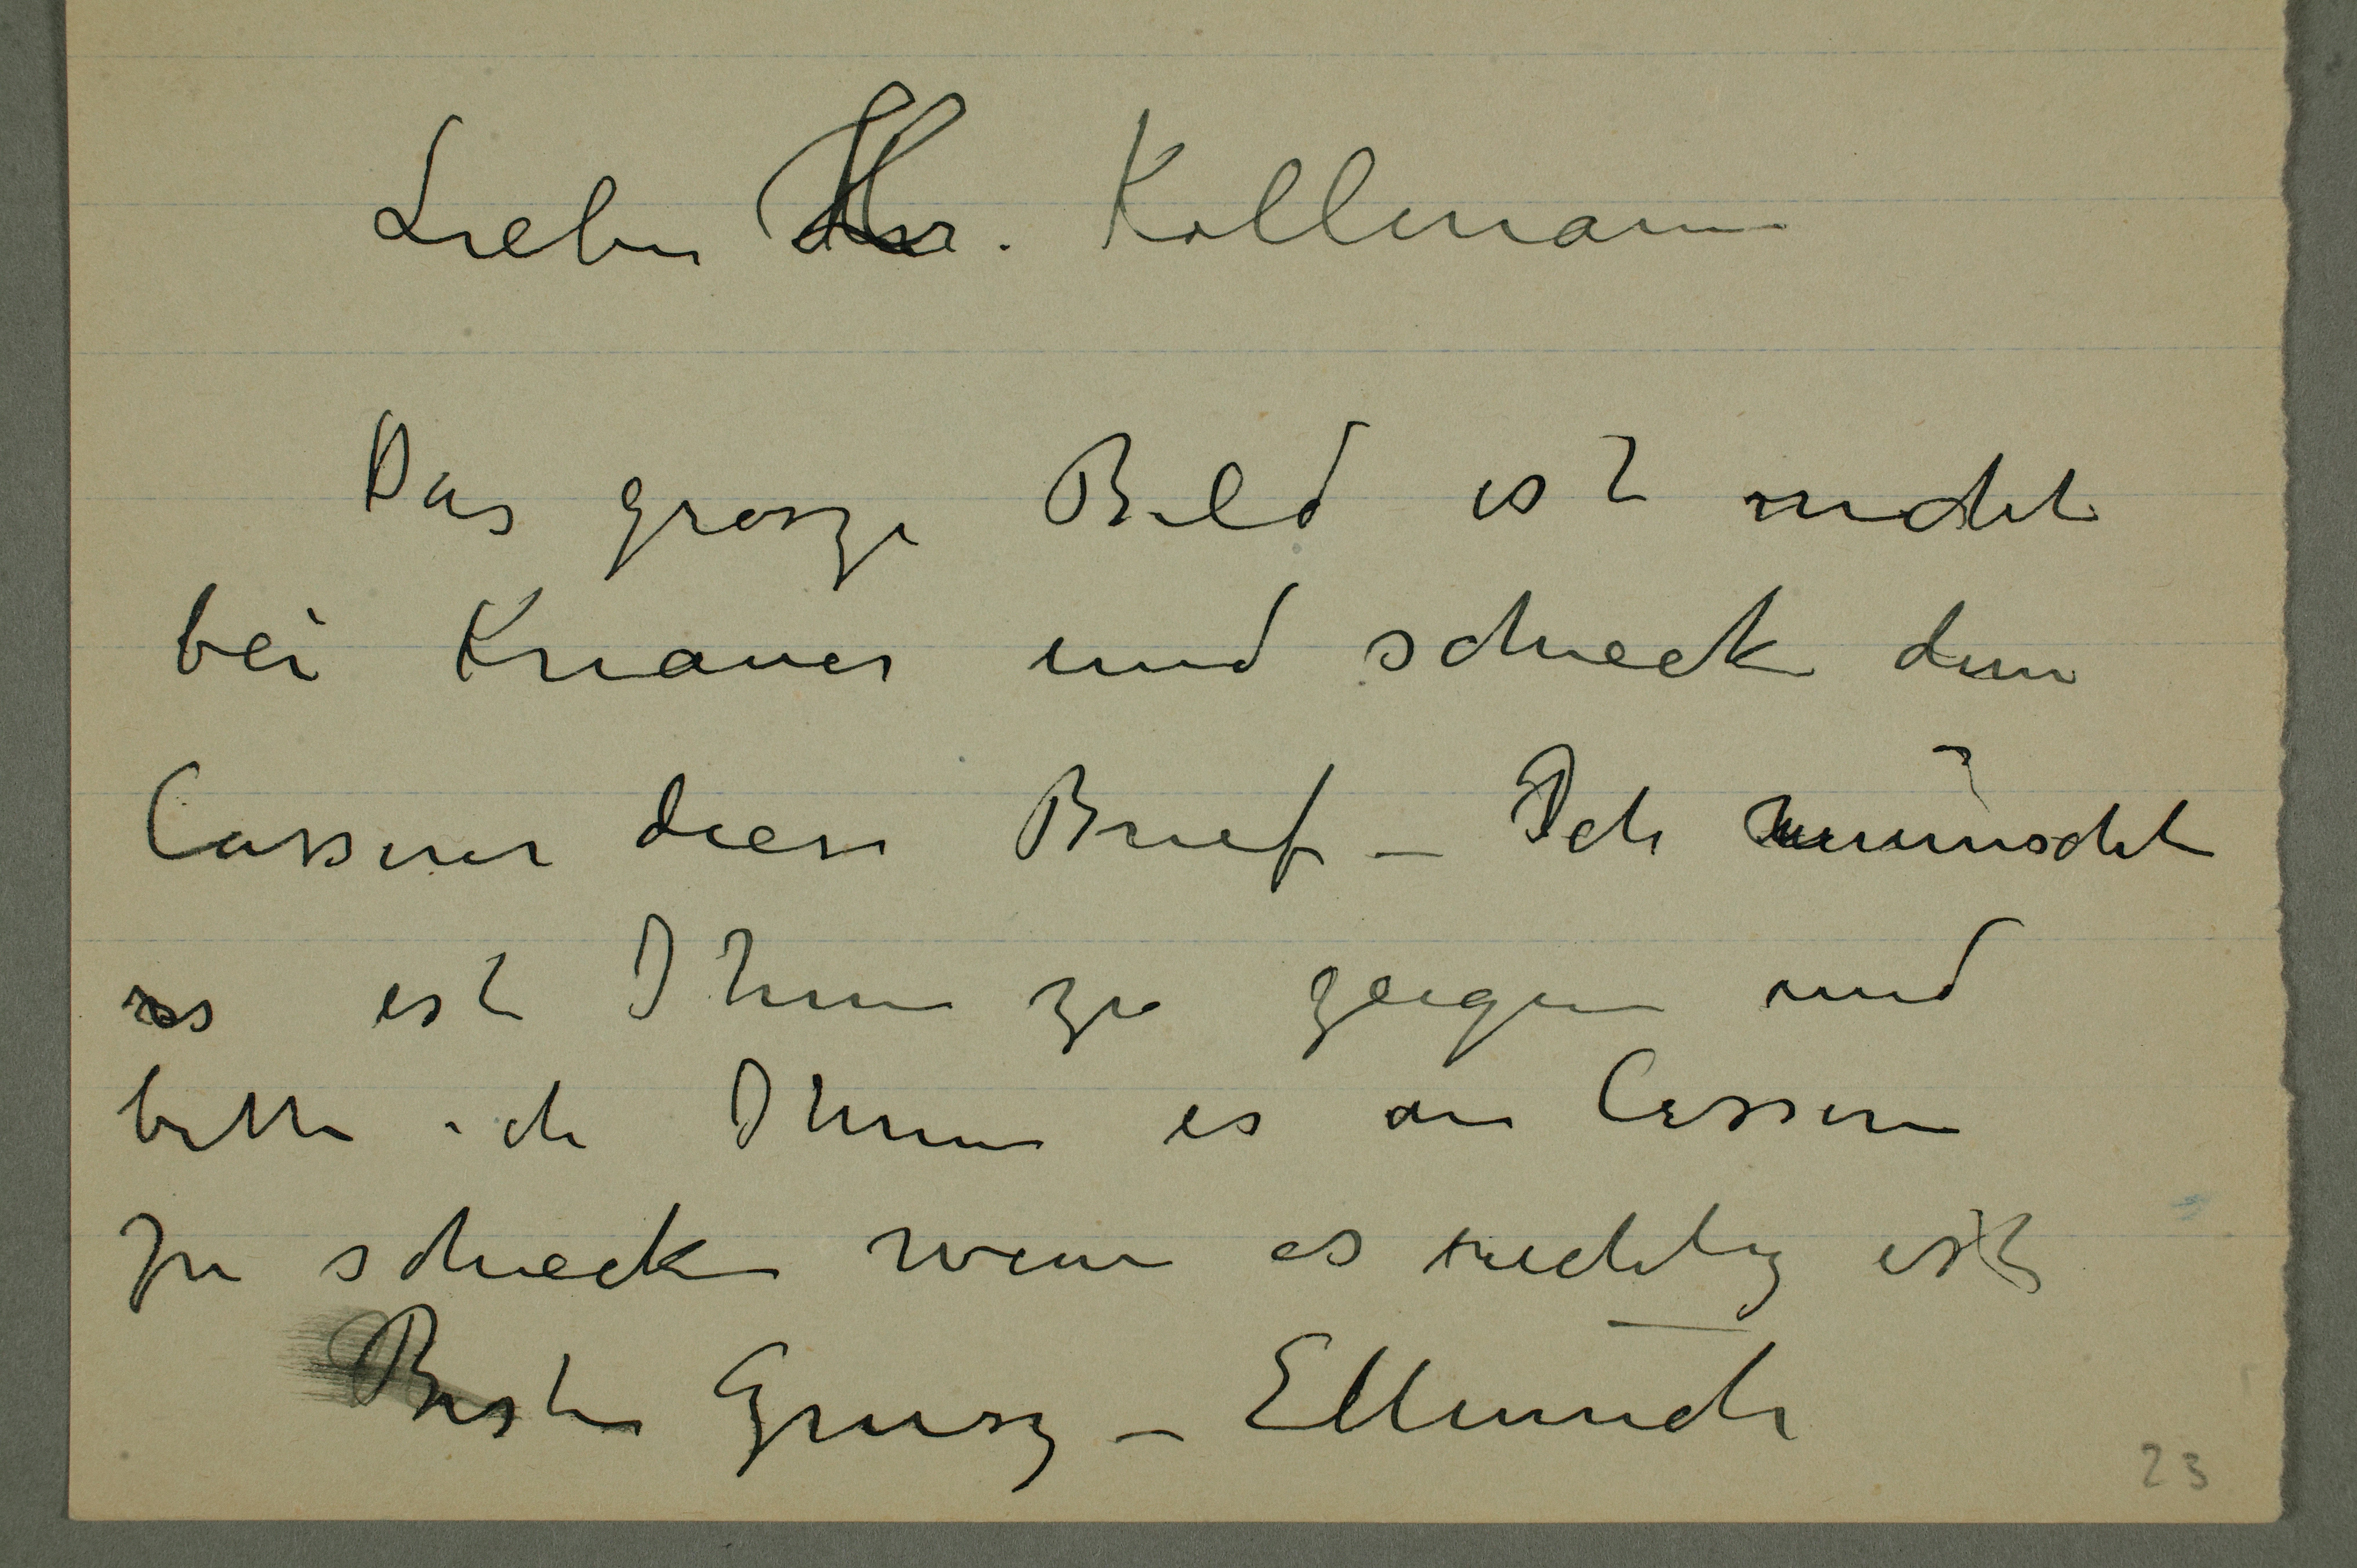 Lieber Hr. Kollmann
Das grosze Bild ist nicht
bei Knauer und schiecke dem
Cassirer diesen Brief – Ich wünschte
es erst Ihnen zu zeigen und
bitte ich Ihnen es an Cassirer
zu schiecken wenn es richtig ist
Besten Grusz – Ellmrich
23